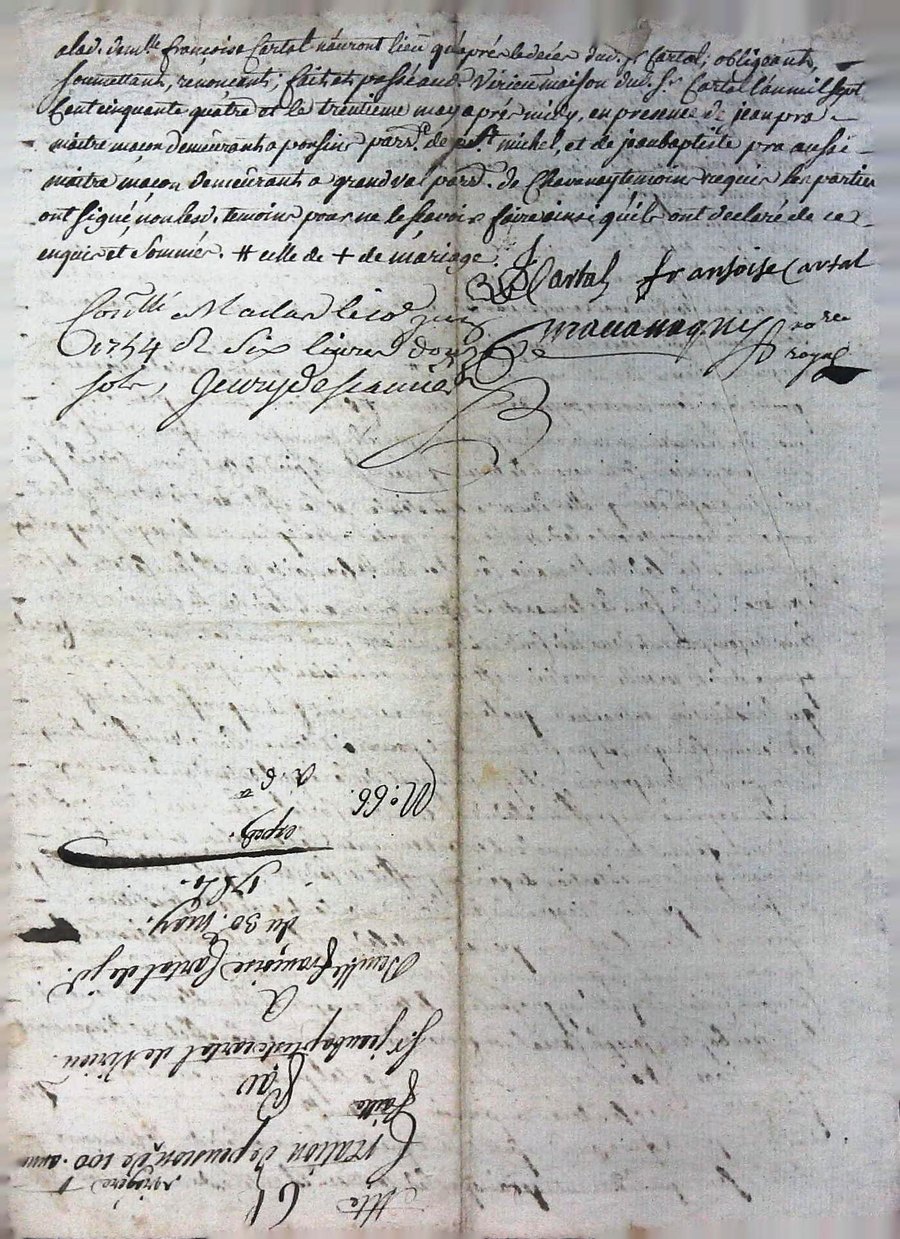 alad. demlle françoise Cartal n'auront lieu qu'après le decès dud. sr Cartal; obligeants,
soumettant, renonceants; fait et passé aud. Virieu maison dud. Sr. Cartal l'an mil sept
Cent cinquante quatre et le trentieme may après midy, en presence de jean pra
maitre maçon demeurant a ponsins parss. de st michel, et de jean baptiste pra aussi
maitre maçon demeurant a grand val parss. de Chavanay temoins requis les parties
ont signé, non lesd. temoins pour ne le sçavoir faire ainsi qu'ils ont declaré de ce
enquis et sommés. # celle de + de mariage.
Cartal françoise Cartal
Conllé a Maclas le
1754 R six livres douze
sols,
royal
No. 66.
exped.
du 30. may.
1754.
Demlle françoise Cartal de jd.
A
Sr. jean baptiste Cartal de Virieu
Par
faitte
Création de pension de 100.
viagere